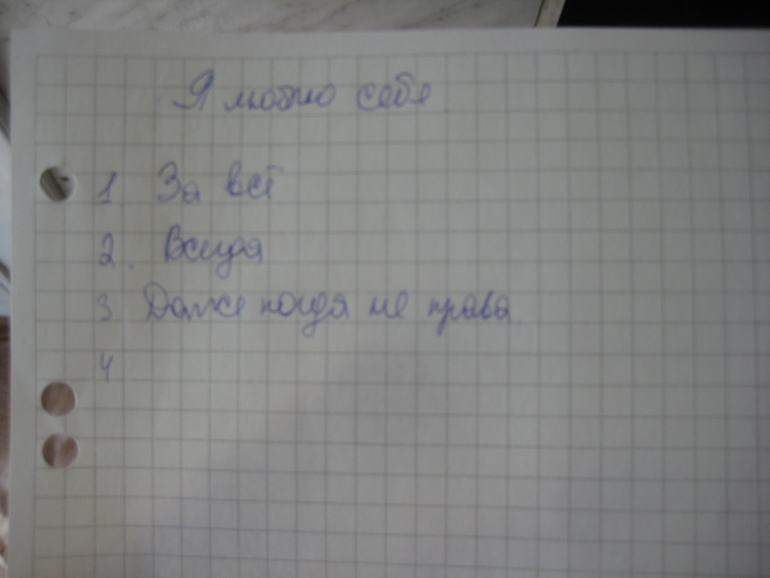 Я люблю себя
1 За всё
2. Всегда
3 Даже когда не права.
4